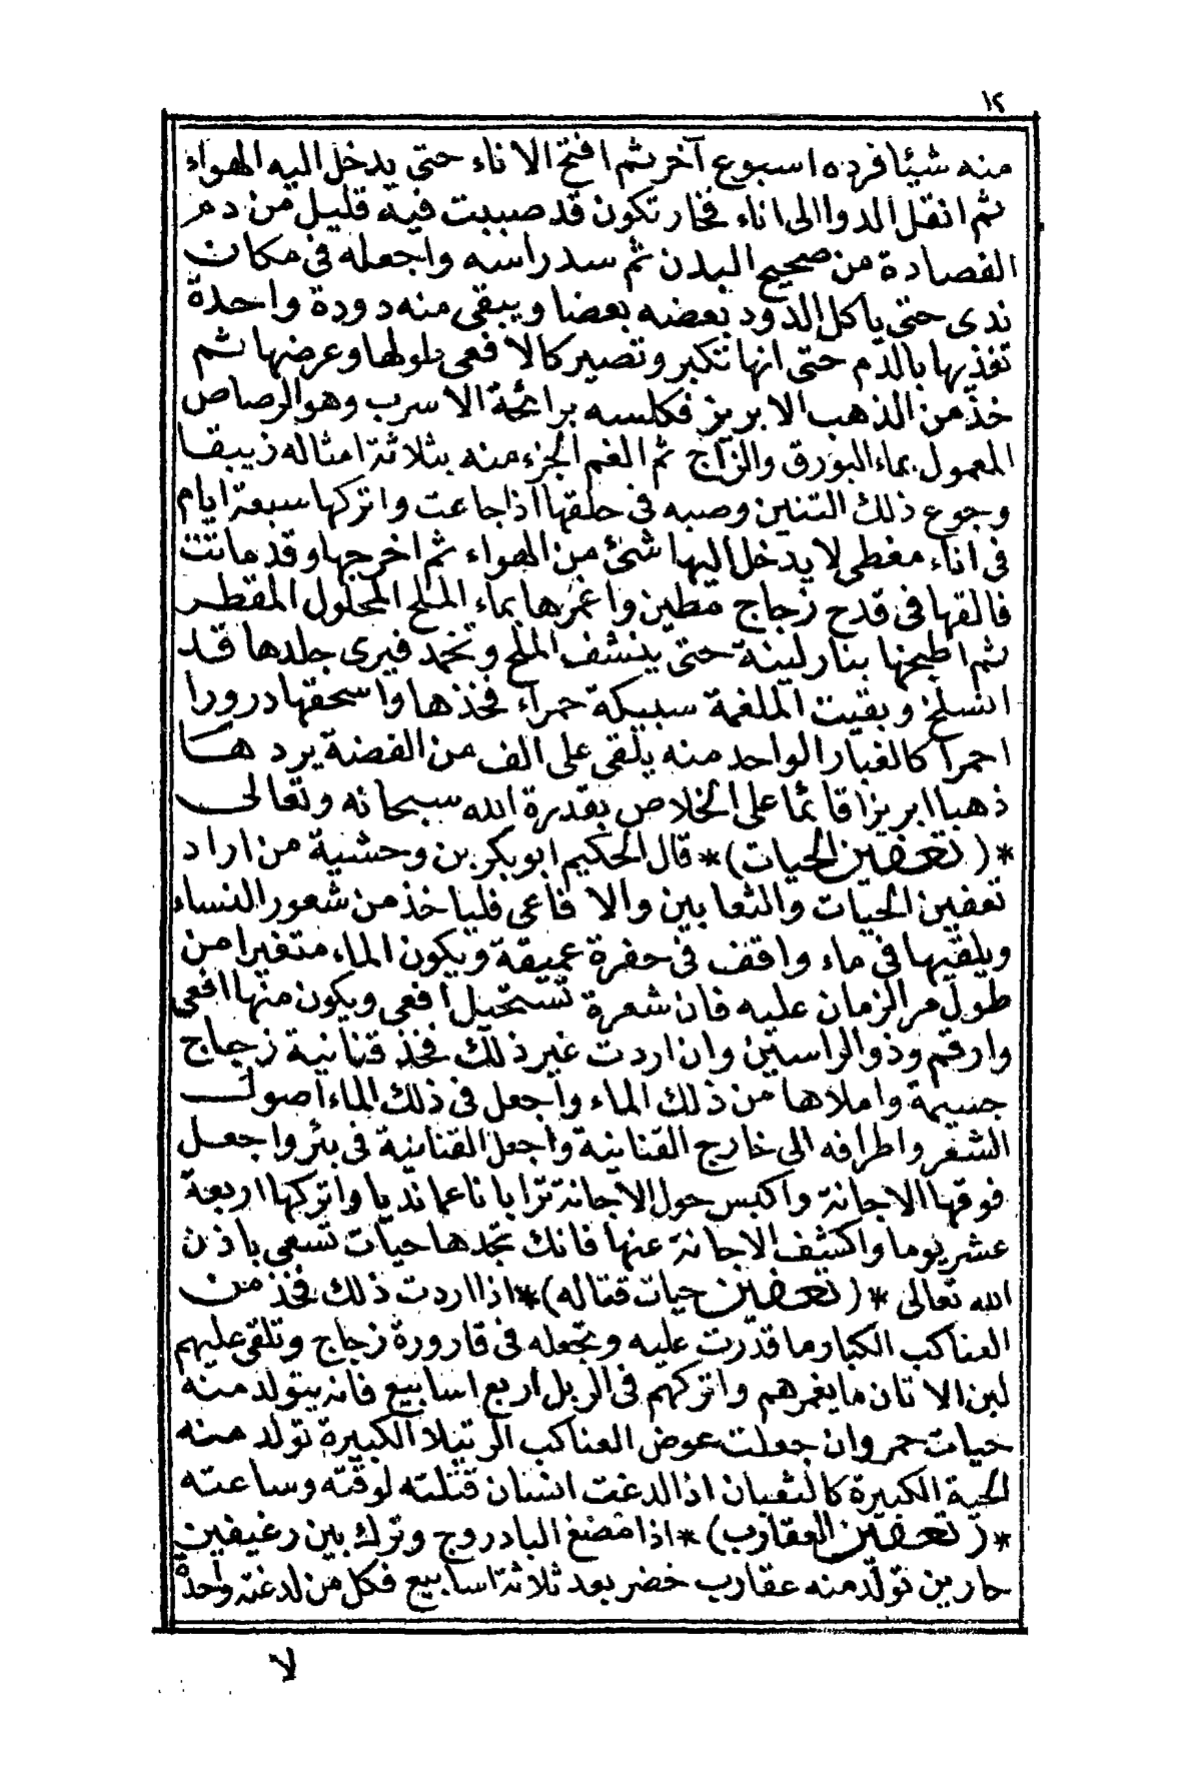 ١٢
منه شيئا فرده اسبوع آخر ثم افتح الاناء حتى يدخل اليه الهواء
ثم انقل الدوا الى اناء فخار تكون قد صببت فيه قليل من دم
الفصادة من صحيح البدن ثم سد راسه واجعله فى مكان
ندى حتى ياكل الدود بعضه بعضا ويبقى منه دودة واحدة
تغذيها بالدم حتى انها تكبر وتصير كالافعى طولها وعرضها ثم
خذ من الذهب الابريز فكلسه برائحة الاسرب وهو الرصاص
المعمول بماء البورق والزاج ثم الغم الجزء منه بثلاثة امثاله زيبقا
وجوع ذلك التنين وصبه فى حلقها اذا جاعت واتركها سبعة ايام
فى اناء مغطى لا يدخل اليها شئ من الهواء ثم اخرجها وقد ماتت
فالقها فى قدح زجاج مطين واغمرها بماء الملح المحلول المقطر
ثم اطبخها بنار لينة حتى ينشف الملح وتخمد فيرى جلدها قد
انسلخ وبقيت الملغمة سبيكة حمراء فخذها واسحقها درورا
احمرا كالغبار الواحد منه يلقى على الف من الفضة يردها
ذهبا ابريزا قائما على الخلاص بقدرة الله سبحانه وتعالى
*(تعفين الحيات)* قال الحكيم ابو بكر بن وحشية من اراد
تعفين الحيات والثعابين والافاعى فلياخذ من شعور النساء
ويلقيها فى ماء واقف فى حفرة عميقة ويكون الماء متغيرا من
طول مر الزمان عليه فان شعرة تستحيل افعى ويكون منها افعى
وارقم وذو الراسين وان اردت غير ذلك فخذ قنانية زجاج
جسيمة واملاها من ذلك الماء واجعل فى ذلك الماء اصول
الشعر واطرافه الى خارج القنانية واجعل القنانية فى بئر واجعل
فوقها الاجانة واكبس حول الاجانة ترابا ناعما نديا واتركها اربعة
عشر يوما واكشف الاجانة عنها فانك تجدها حيات تسعى باذن
الله تعالى *(تعفين حيات قتاله)* اذا اردت ذلك فخذ من
العناكب الكبار ما قدرت عليه وتجعله فى قارورة زجاج وتلقى عليهم
لبن الاتان ما يغمرهم واتركهم فى الزبل اربع اسابيع فانه يتولد منه
حيات حمر وان جعلت عوض العناكب الرتيلا الكبيرة تولد منه
الحية الكبيرة كالثعبان اذا لدغت انسان قتلته لوقته وساعته
*(تعفين العقارب)* اذا مضغ البادروج وترك بين رغيفين
حارين تولد منه عقارب خضر بعد ثلاثة اسابيع فكل من لدغته واحدة
لا